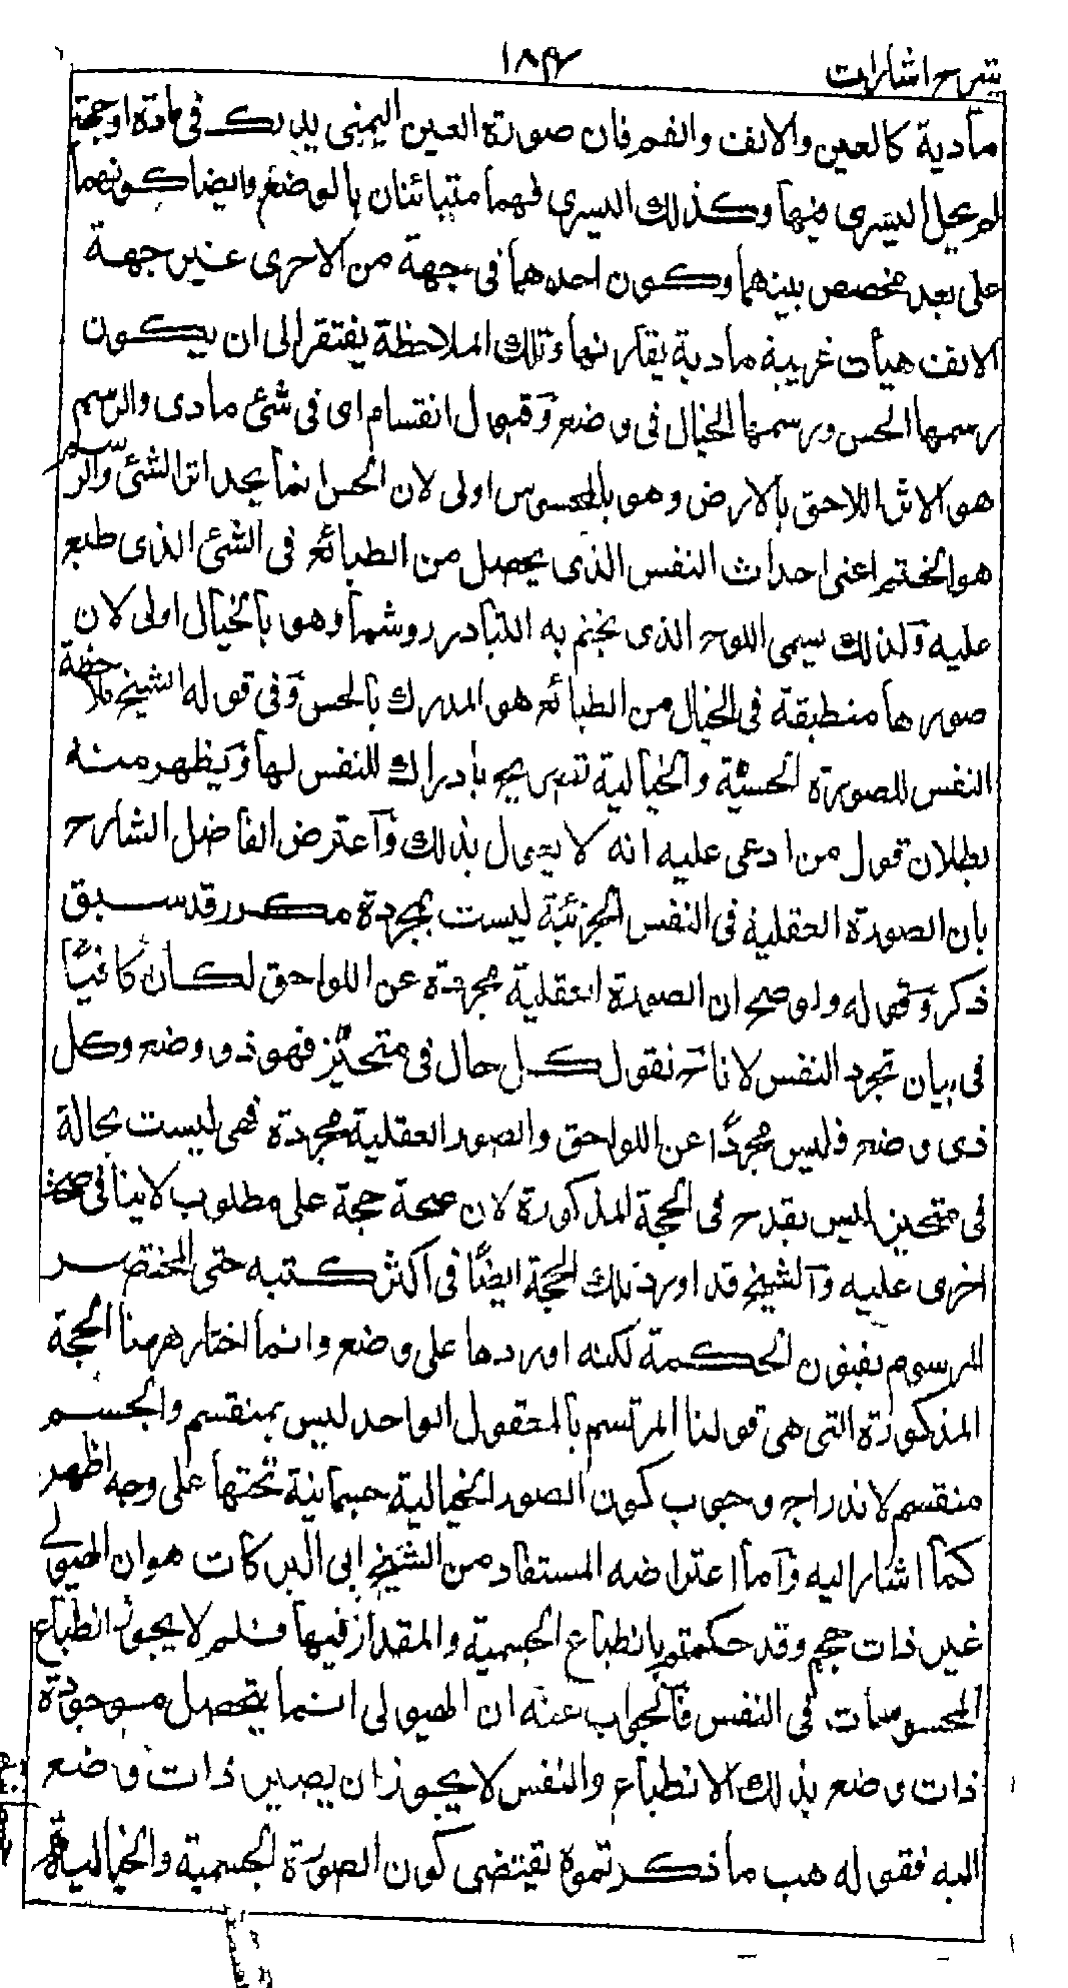 شرح اشارات
١٨٣
مادية كالعين والانف والفم فان صورة العين اليمنى يدرك فى مادة او جهة
لم يحل اليسرى فيها وكذلك اليسرى فهما متبائنان بالوضع وايضا كونهما
على بعد مخصص بينهما وكون احدهما فى جهة من الاخرى غير جهة
الانف هيأت غريبة مادية يقارنها وتلك الملاحظة يفتقر الى ان يكون
رسمها الحس ورسمها الخيال فى وضع وقبول انقسام اى فى شئ مادى والرسم
هو الاثر اللاحق بالارض وهو بالمحسوس اولى لان الحس انما يجد اثر الشئ والرسم
هو الختم اعنى احداث النفس الذى يحصل من الطبائع فى الشئ الذى طبع
عليه ولذلك يسمى اللوح الذى يختم به البيادر روشما وهو بالخيال اولى لان
صورها منطبقة فى الخيال من الطبائع هو المدرك بالحس وفى قوله الشيخ ملاحظة
النفس للصورة الحسية والخيالية تصريح بادراك النفس لها ويظهر منه
بطلان قول من ادعى عليه انه لا يقول بذلك واعترض الفاضل الشارح
بان الصورة العقلية فى النفس الجزئية ليست بمجردة مكرر قد سبق
ذكر وقوله ولو صح ان الصورة العقلية مجردة عن اللواحق لكان كافيًا
فى بيان تجرد النفس لانا نقول كل حال فى متحيّز فهو ذو وضع وكل
ذى وضع فليس مجردًا عن اللواحق والصور العقلية مجردة فهى ليست بحالة
فى متحيز ليس بقدح فى الحجة المذكورة لان صحة حجة على مطلوب لا ينافى صحة
اخرى عليه والشيخ قد اورد تلك الحجة ايضًا فى اكثر كتبه حتى المختصر
المرسوم بعيون الحكمة لكنه اوردها على وضع وانما اختار ههنا الحجة
المذكورة التى هى قولنا المرتسم بالمعقول الواحد ليس بمنقسم والجسم
منقسم لاندراج وجوب كون الصور الخيالية جسمانية تحتها على وجه اظهر
كما اشار اليه واما اعتراضه المستفاد من الشيخ ابى البركات هو ان الهيولى
غير ذات حجم وقد حكمتم بانطباع الجسمية والمقدار فيها فلم لا يجوز انطباع
المحسوسات فى النفس فالجواب عنه ان الهيولى انما يتحصل موجودة
ذات وضع بذلك الانطباع والنفس لا يجوز ان يصير ذات وضع
البه فقوله هب ما ذكرتموه يقتضى كون الصورة الجسمية والخيالية